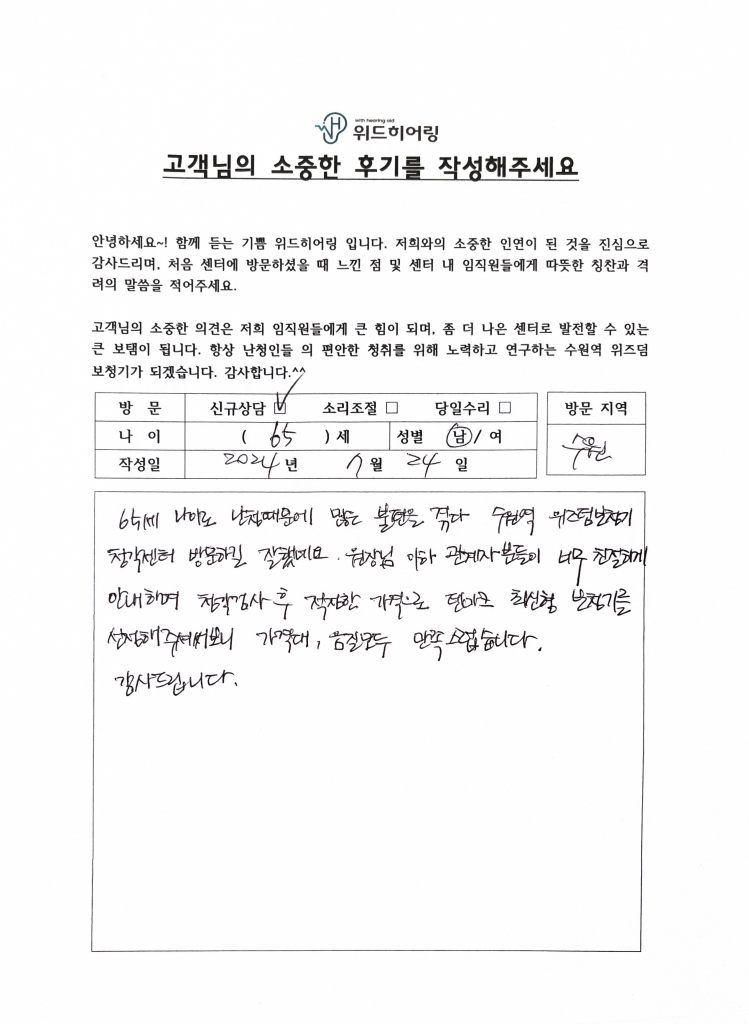 with hearing aid
위드히어링
고객님의 소중한 후기를 작성해주세요
안녕하세요~! 함께 듣는 기쁨 위드히어링 입니다. 저희와의 소중한 인연이 된 것을 진심으로
감사드리며, 처음 센터에 방문하셨을 때 느낀 점 및 센터 내 임직원들에게 따뜻한 칭찬과 격
려의 말씀을 적어주세요.
고객님의 소중한 의견은 저희 임직원들에게 큰 힘이 되며, 좀 더 나은 센터로 발전할 수 있는
큰 보탬이 됩니다. 항상 난청인들 의 편안한 청취를 위해 노력하고 연구하는 수원역 위즈덤
보청기가 되겠습니다. 감사합니다.^^
방 문 신규상담 ☑ 소리조절 □ 당일수리 □ 방문 지역
나 이 ( 65 ) 세 성별 남 / 여 수원
작성일 2024 년 7 월 24 일
65세 나이로 난청때문에 많은 불편을 겪다 수원역 위즈덤보청기
청각센터 방문하길 잘했네요. 원장님 이하 관계자분들이 너무 친절하게
안내하며 청각검사 후 적당한 가격으로 덴마크 최신형 보청기를
선정해주셔써보니 가격대, 음질모두 만족스럽습니다.
감사드립니다.